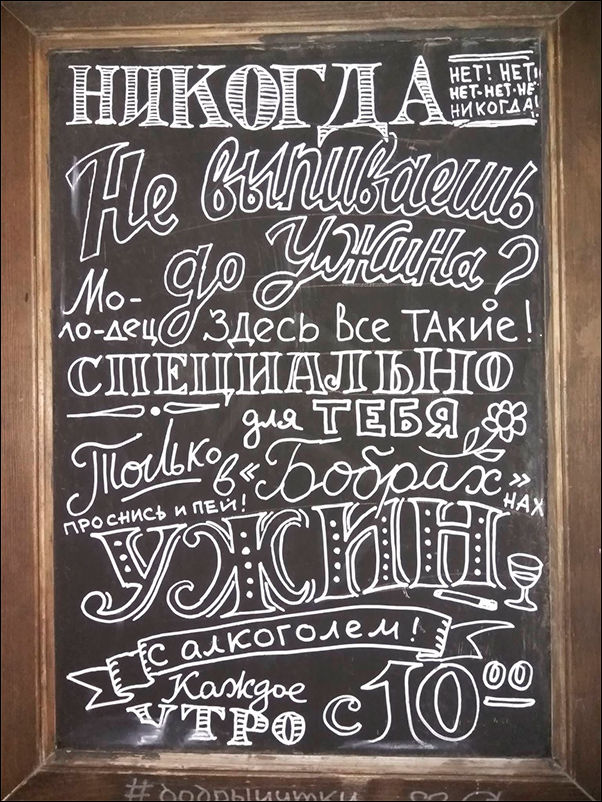 НИКОГДА
НЕТ! НЕТ!
НЕТ-НЕТ-НЕ
НИКОГДА!
Не выпиваешь
до ужина?
Мо-
ло-дец
Здесь все такие!
СПЕЦИАЛЬНО
для ТЕБЯ
Только
в «Бобрах»
НАХ
ПРОСНИСЬ И ПЕЙ!
УЖИН
с алкоголем!
Каждое
УТРО с 10 00